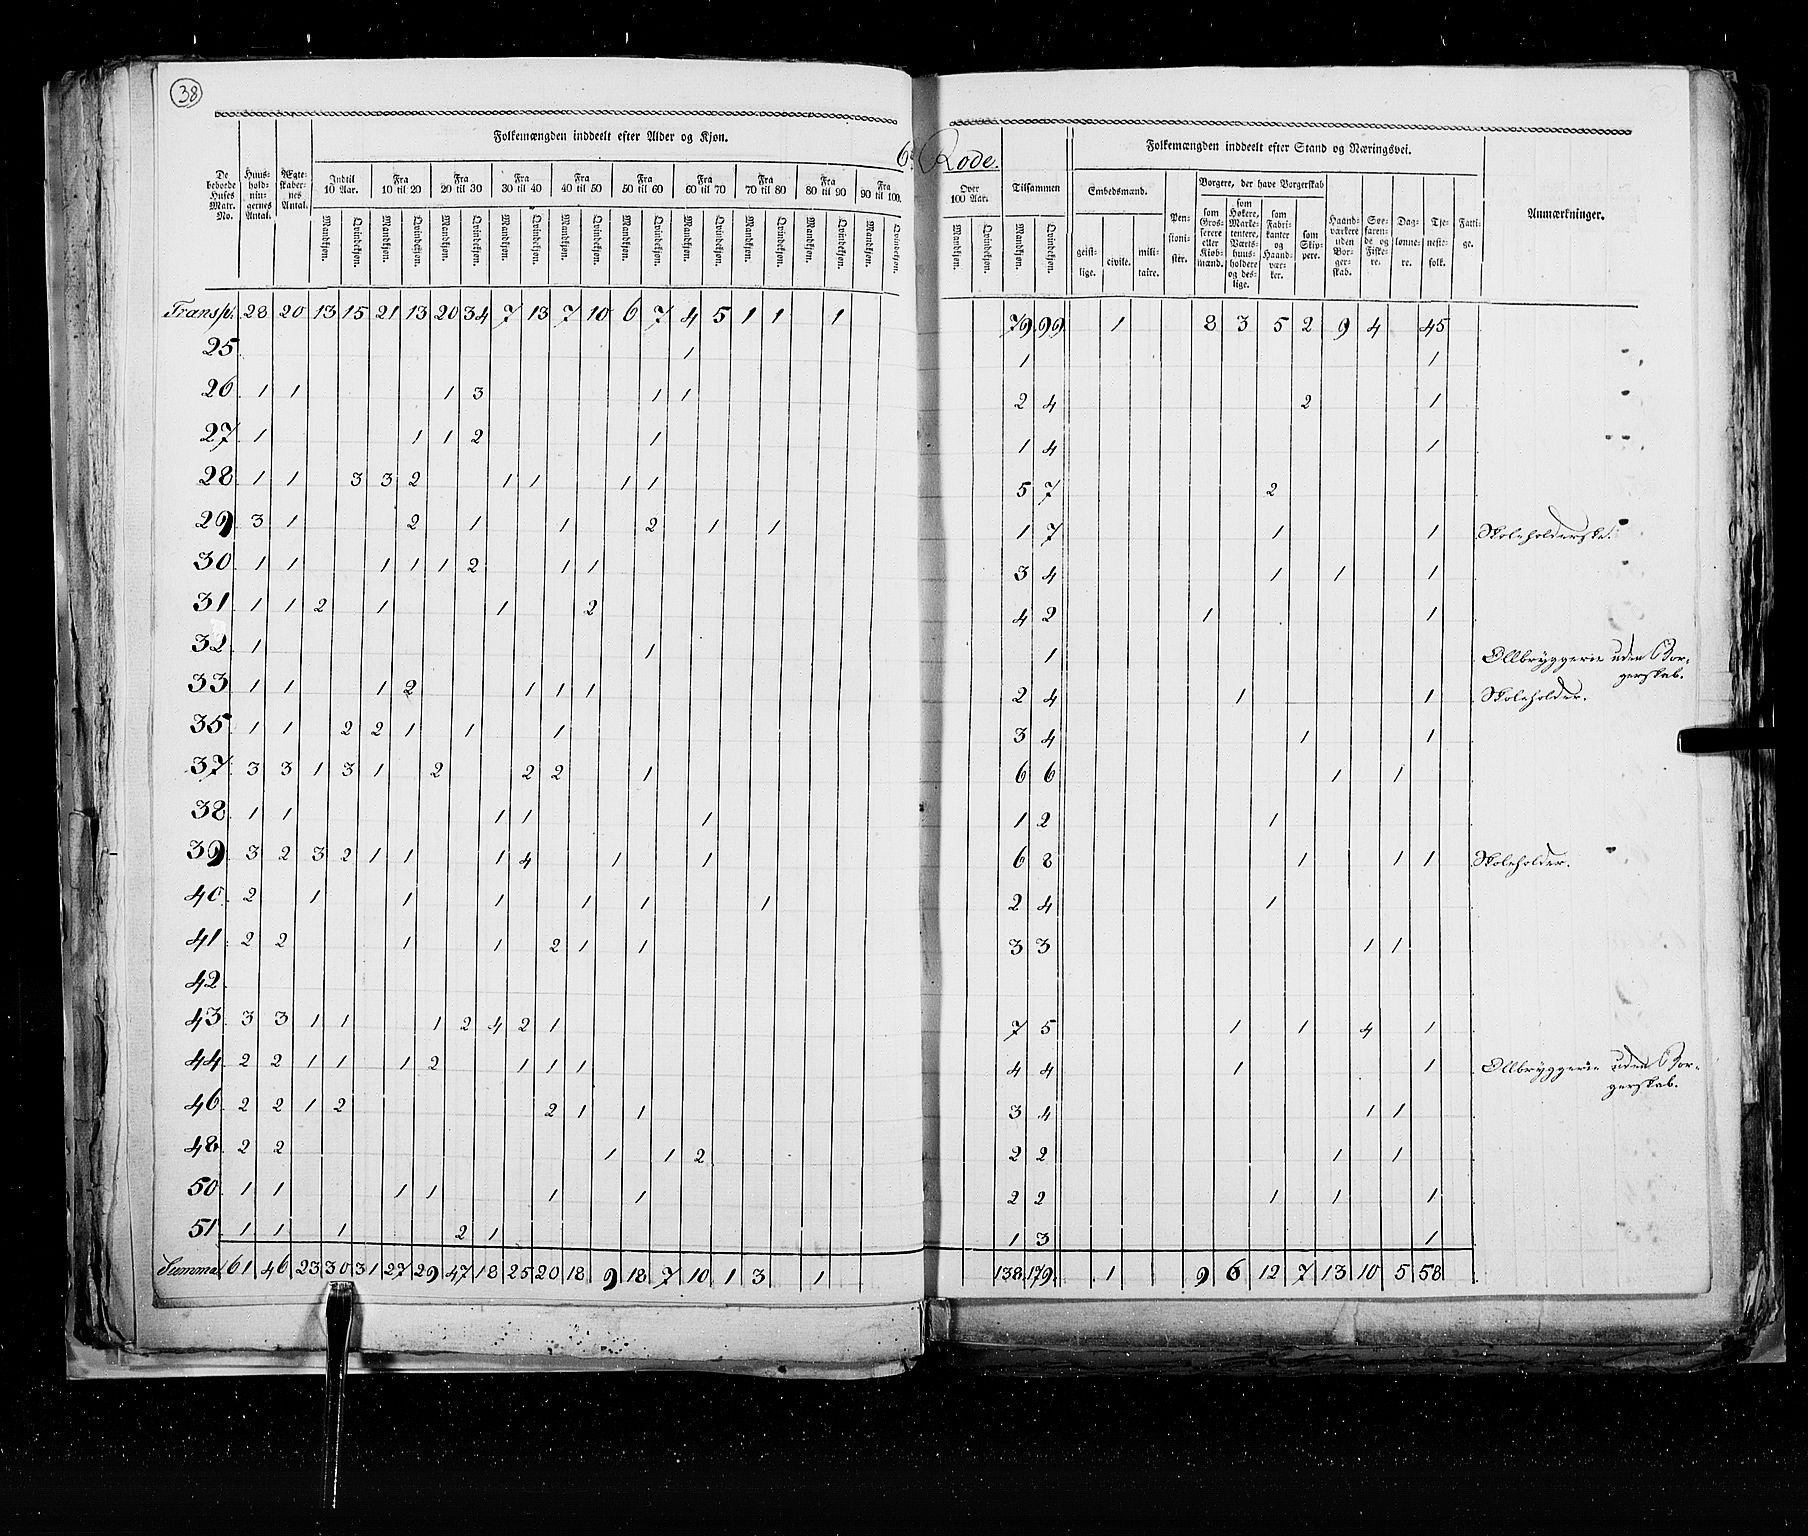 38
6te Rode.
Folkemængden inddeelt efter Alder og Kjøn.
Folkemængden inddeelt efter Stand og Næringsvei.
De beboede Huses Matr. No.
Huusholdningernes Antal.
Ægteskabernes Antal.
Indtil 10 Aar. Fra 10 til 20 Fra 20 til 30 Fra 30 til 40 Fra 40 til 50 Fra 50 til 60 Fra 60 til 70 Fra 70 til 80 Fra 80 til 90 Fra 90 til 100. Over 100 Aar. Tilsammen
Mandkjøn. Qvindekjøn. Mandkjøn. Qvindekjøn. Mandkjøn. Qvindekjøn. Mandkjøn. Qvindekjøn. Mandkjøn. Qvindekjøn. Mandkjøn. Qvindekjøn. Mandkjøn. Qvindekjøn. Mandkjøn. Qvindekjøn. Mandkjøn. Qvindekjøn. Mandkjøn. Qvindekjøn. Mandkjøn. Qvindekjøn. Mandkjøn. Qvindekjøn.
Embedsmænd.
geistlige. civile. militaire.
Pensionister.
Borgere, der have Borgerskab
som Grosserere eller Kjøbmænd.
som Høkere, Marketentere, Værtshuusholdere og deslige.
som Fabrikanter og Haandværker.
som Skippere.
Haandværkere uden Borgerskab.
Søefarende og Fiskere.
Daglønnere.
Tjenestefolk.
Fattige.
Anmærkninger.
Transp. 28 20 13 15 21 13 20 34 7 13 7 10 6 7 4 5 1 1 1 79 99 1 8 3 5 2 9 4 45
25 1 1 1
26 1 1 1 3 1 1 2 4 2 1
27 1 1 1 2 1 1 4 1
28 1 1 3 3 2 1 1 1 1 5 7 2
29 3 1 2 1 1 2 1 1 1 7 1 1 Skoleholderske.
30 1 1 1 1 1 2 1 1 3 4 1 1 1
31 1 1 2 1 1 2 4 2 1 1
32 1 1 1 Ollbryggerie uden Borgerskab.
33 1 1 1 2 1 1 1 2 4 1 1 Skoleholder.
35 1 1 2 2 1 1 1 3 4 1 1
37 3 3 1 3 1 2 2 2 1 6 6 1 1
38 1 1 1 1 1 1 2 1
39 3 2 3 2 1 1 1 4 1 1 6 8 1 1 1 Skoleholder.
40 2 1 1 1 1 1 1 2 4 1
41 2 2 1 1 2 1 1 3 3 1 1
42
43 3 3 1 1 1 2 4 2 1 7 5 1 1 4 1
44 2 2 1 1 1 2 1 1 1 4 4 1 1 Ollbryggerie uden Borgerskab.
46 2 2 1 2 2 1 1 3 4 1 1
48 2 2 1 1 2 2 2 1 1
50 1 1 1 1 1 1 2 2 1 1 1
51 1 1 1 2 1 1 3 1
Summa 61 46 23 30 31 27 29 47 18 25 20 18 9 18 7 10 1 3 1 138 179 1 9 6 12 7 13 10 5 58